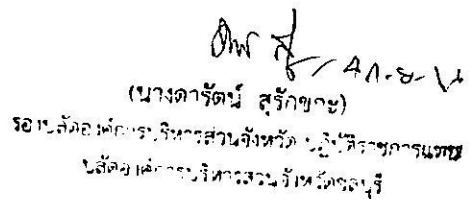 4 ก.ย.
(นางดารัตน์ สุรักขกะ)
รองปลัดองค์การบริหารส่วนจังหวัด ปฏิบัติราชการแทน
ปลัดองค์การบริหารส่วนจังหวัดชลบุรี